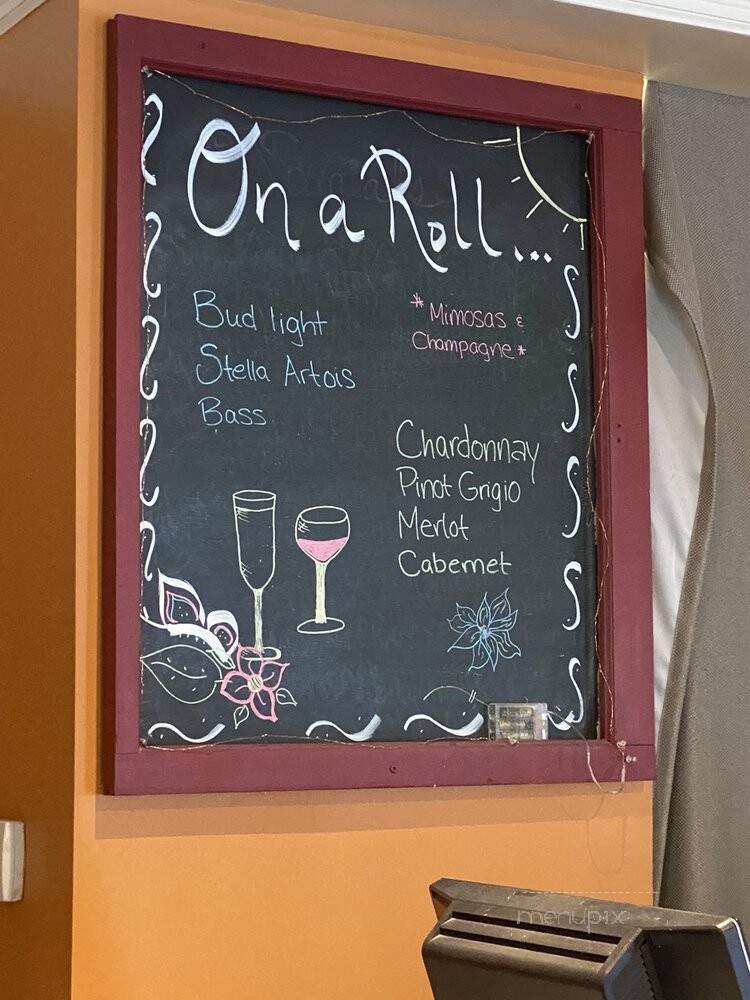 On a Roll...
Bud light
Stella Artois
Bass
*Mimosas &
Champagne*
Chardonnay
Pinot Grigio
Merlot
Cabernet
menupix